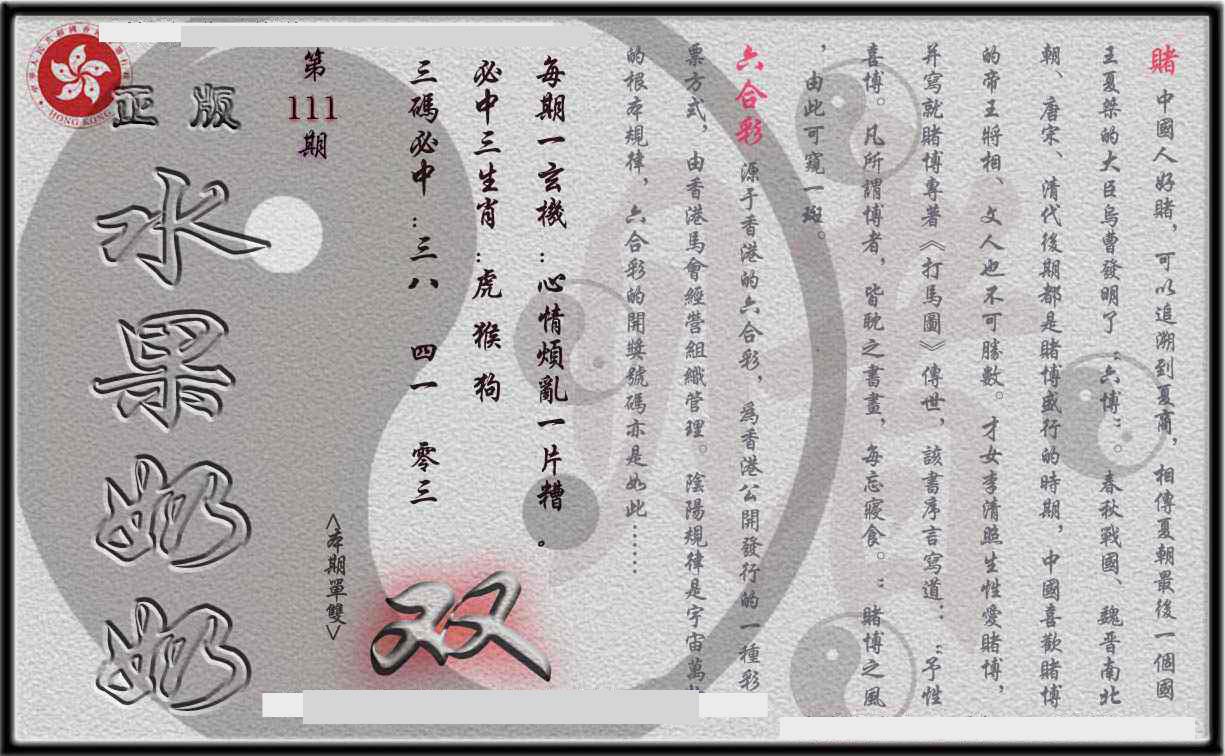 賭 中國人好賭，可以追溯到夏商，相傳夏朝最後一個國
王夏桀的大臣烏曹發明了“六博”。春秋戰國、魏晉南北
朝、唐宋、清代後期都是賭博盛行的時期，中國喜歡賭博
的帝王將相、文人也不可勝數。才女李清照生性愛賭博，
并寫就賭博專著《打馬圖》傳世，該書序言寫道：“予性
喜博。凡所謂博者，皆耽之書畫，每忘寢食。”賭博之風
，由此可窺一斑。
六合彩 源于香港的六合彩，爲香港公開發行的一種彩
票方式，由香港馬會經營組織管理。陰陽規律是宇宙萬物
的根本規律，六合彩的開獎號碼亦是如此……
每期一玄機：心情煩亂一片糟。
必中三生肖：虎 猴 狗
三碼必中：三八 四一 零三
双
<本期單雙>
第111期
正版
水果奶奶
HONG KONG